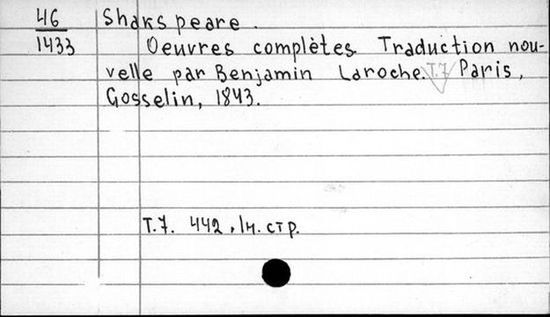 46
1433
Shakspeare.
Oeuvres complètes. Traduction nou-
velle par Benjamin Laroche. T.7 Paris,
Gosselin, 1843.
T.7. 442, IН. стр.